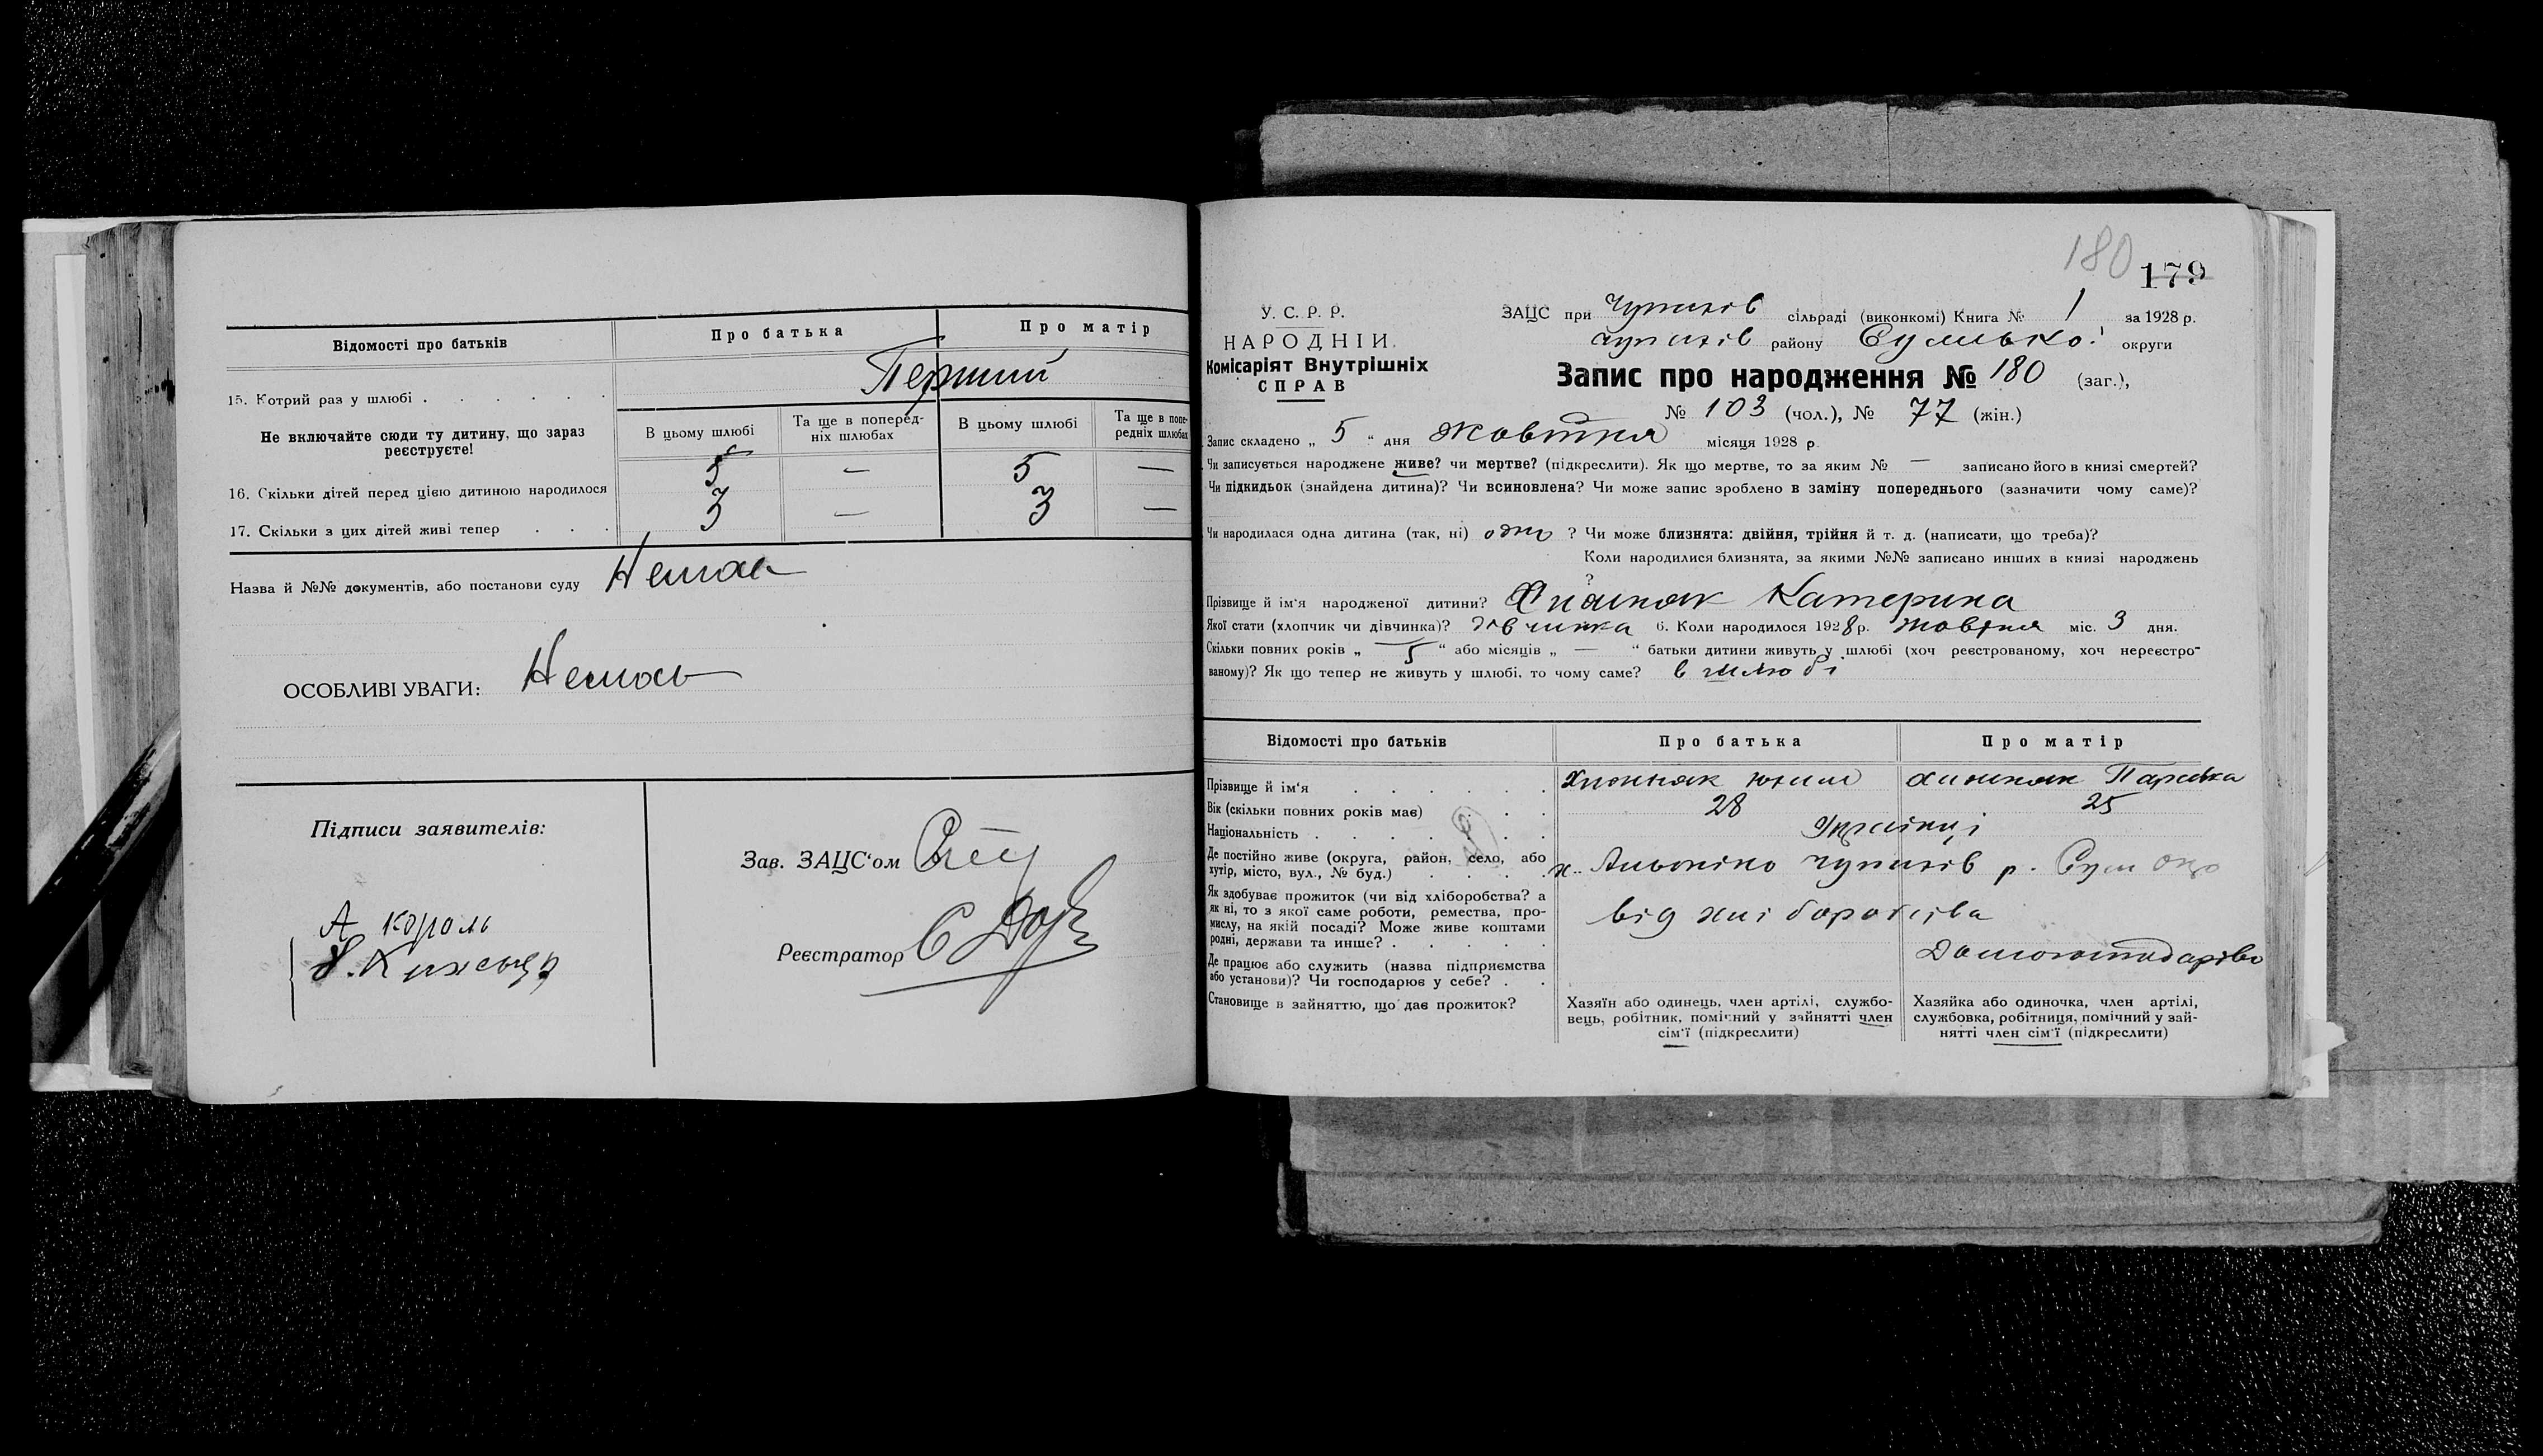 Відомості про батьків
Про батька
Про матір
15. Котрий раз у шлюбі
Перший
Не включайте сюди ту дитину, що зараз
реєструєте!
В цьому шлюбі
Та ще в поперед-
ніх шлюбах
В цьому шлюбі
Та ще в попе-
редніх шлюбах
16. Скільки дітей перед цією дитиною народилося
5 — 5 —
17. Скільки з цих дітей живі тепер
3 — 3 —
Назва й №№ документів, або постанови суду Немає
ОСОБЛИВІ УВАГИ: Немає
Підписи заявителів:
А король
Зав. ЗАЦС'ом
Реєстратор
180
179
У. С. Р. Р.
НАРОДНІЙ
Комісаріят Внутрішніх
СПРАВ
ЗАЦС при Чупахів сільраді (виконкомі) Книга № 1 за 1928 р.
Чупахів району Сумської округи
Запис про народження № 180 (заг.),
№ 103 (чол.), № 77 (жін.)
Запис складено „ 5 “ дня Жовтня місяця 1928 р.
Чи записується народжене живе? чи мертве? (підкреслити). Як що мертве, то за яким № — записано його в книзі смертей?
Чи підкидьок (знайдена дитина)? Чи всиновлена? Чи може запис зроблено в заміну попереднього (зазначити чому саме)?
Чи народилася одна дитина (так, ні) одно ? Чи може близнята: двійня, трійня й т. д. (написати, що треба)?
Коли народилися близнята, за якими №№ записано инших в книзі народжень
?
Прізвище й ім'я народженої дитини? Катерина
Якої стати (хлопчик чи дівчинка)? дівчинка 6. Коли народилося 1928 р. жовтня міс. 3 дня.
Скільки повних років „ 5 “ або місяців „ — “ батьки дитини живуть у шлюбі (хоч реєстрованому, хоч нереєстро-
ваному)? Як що тепер не живуть у шлюбі, то чому саме? в шлюбі
Відомості про батьків
Про батька
Про матір
Прізвище й ім'я
Юхим
Вік (скільки повних років має)
28
25
Національність
Українці
Де постійно живе (округа, район, село, або
хутір, місто, вул., № буд.)
х. Чупахів р. Сум окр
Як здобуває прожиток (чи від хліборобства? а
як ні, то з якої саме роботи, ремества, про-
мислу, на якій посаді? Може живе коштами
родні, держави та инше?
від хліборобства
Де працює або служить (назва підприємства
або установи)? Чи господарює у себе?
Становище в зайняттю, що дає прожиток?
Хазяїн або одинець, член артілі, службо-
вець, робітник, помічний у зайнятті член
сім'ї (підкреслити)
Хазяйка або одиночка, член артілі,
службовка, робітниця, помічний у зай-
нятті член сім'ї (підкреслити)